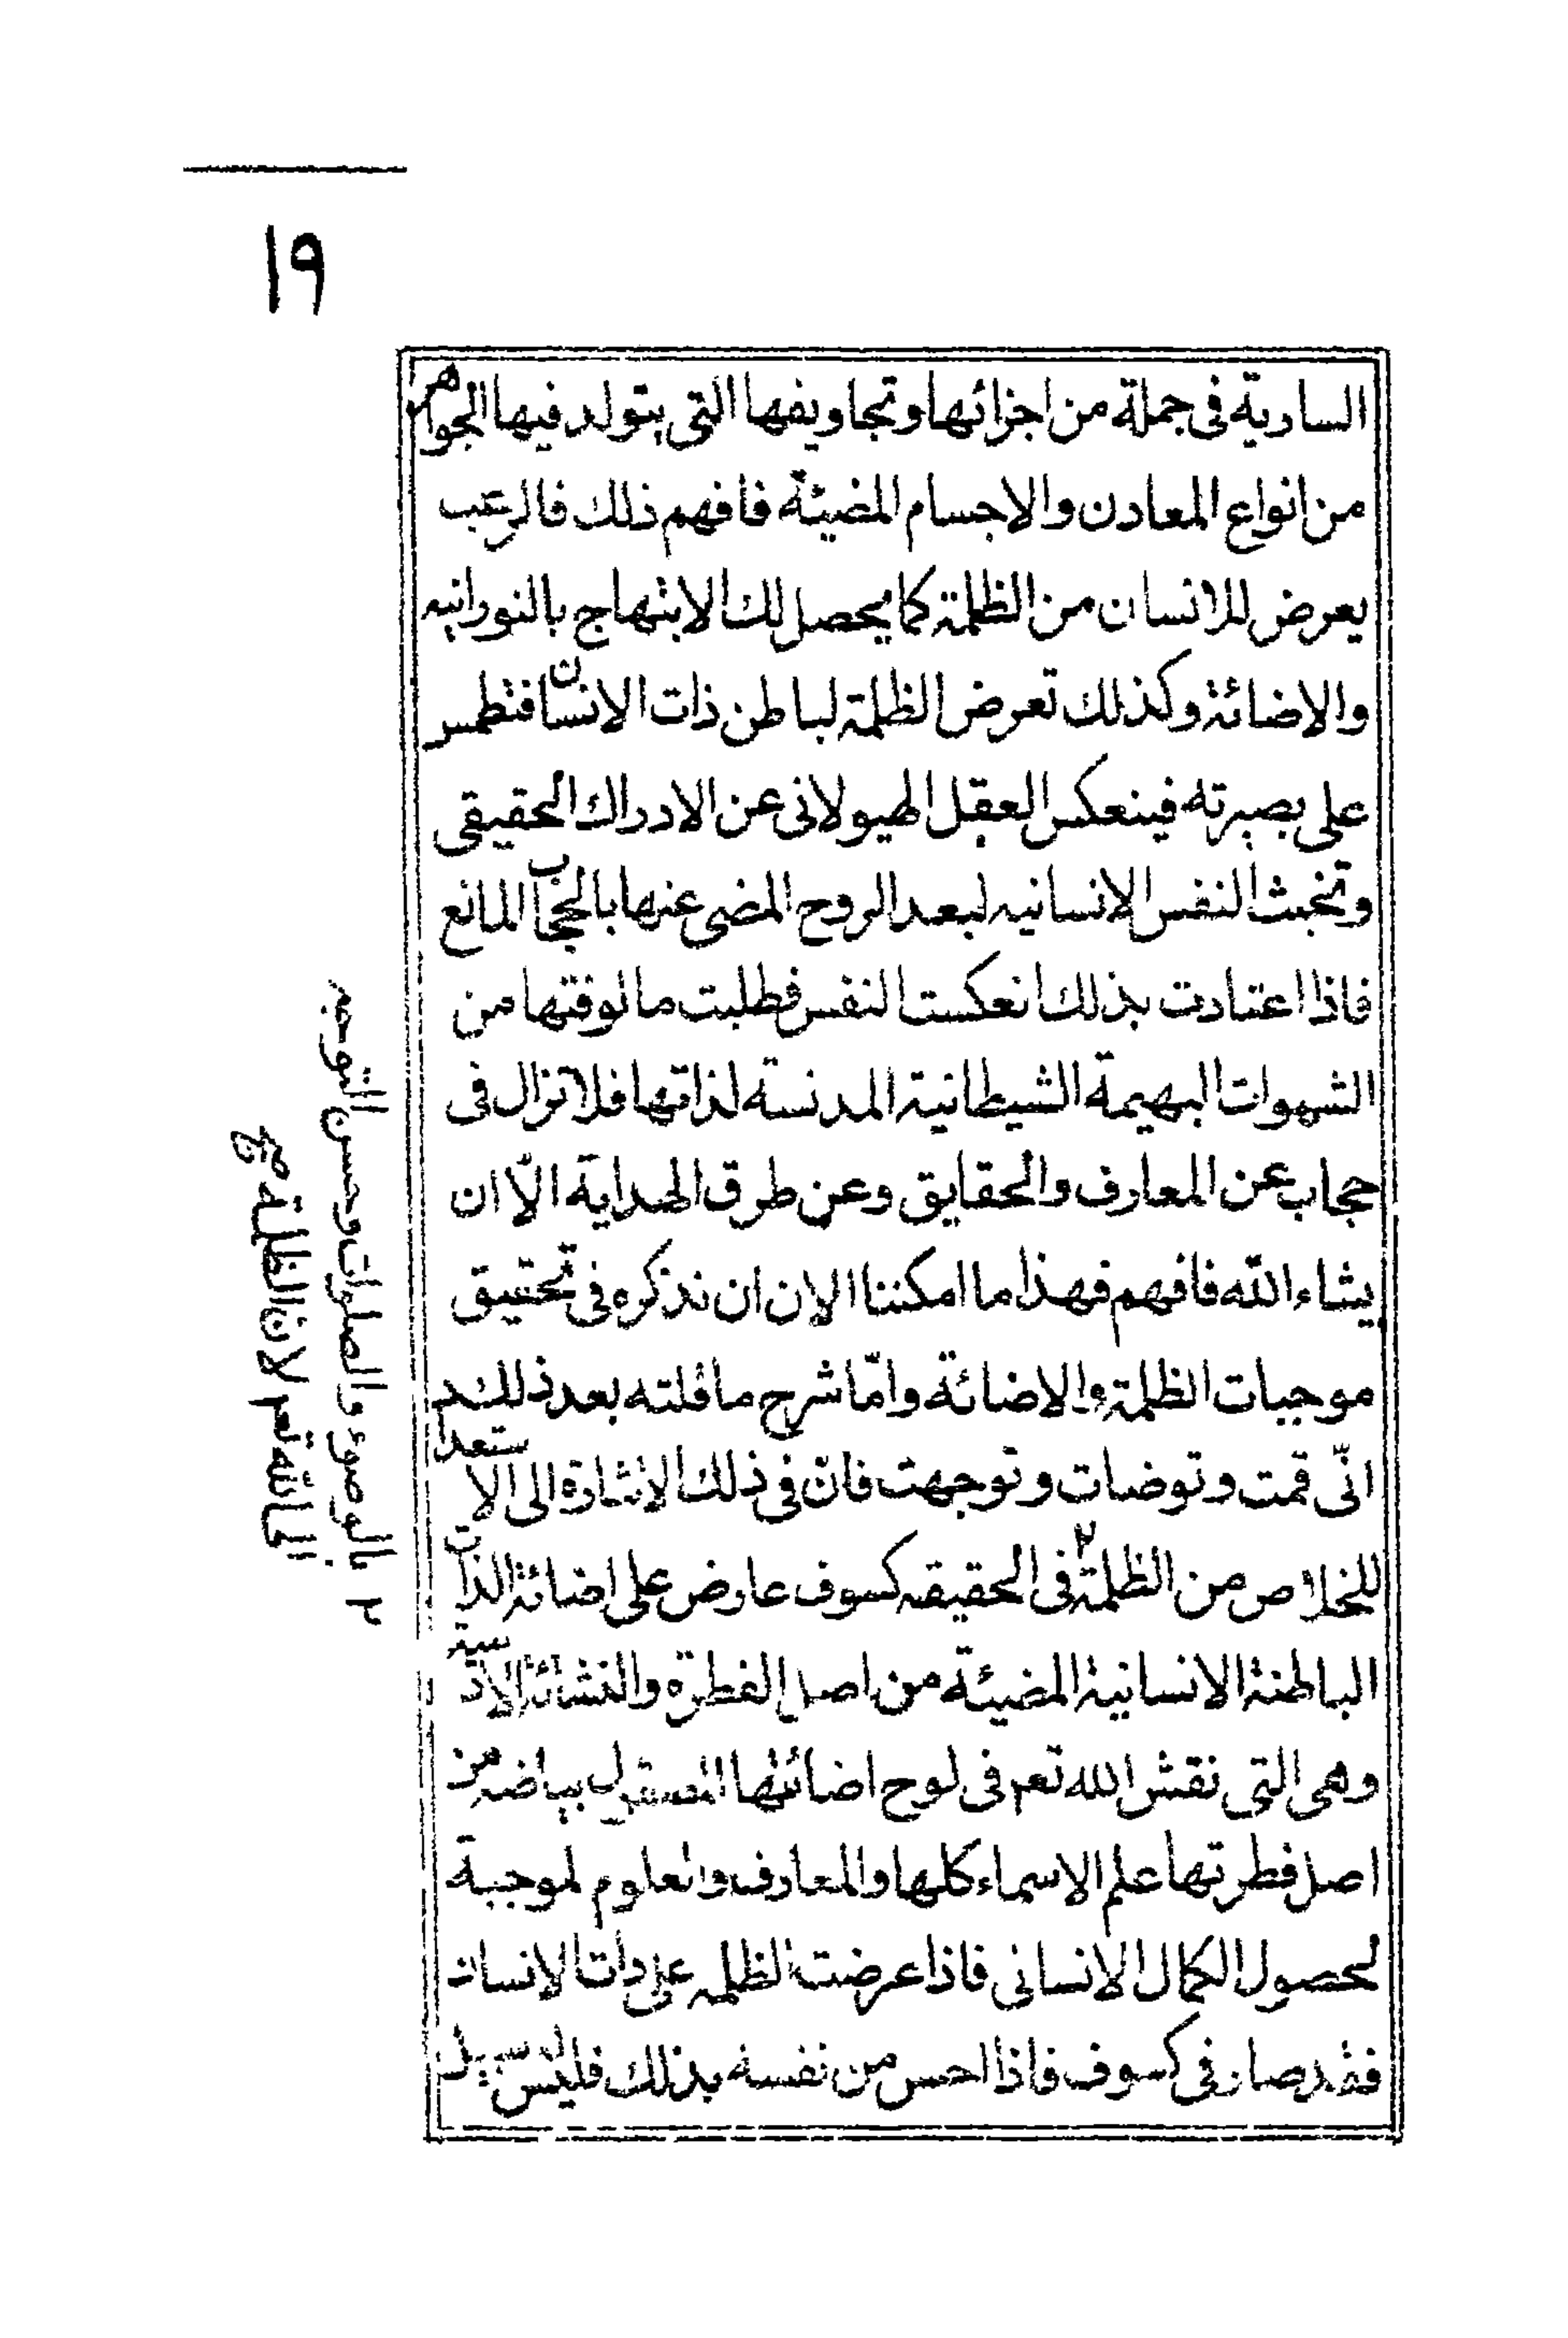 ١٩
السارية فى جملة من اجزائها وتجاويفها التى يتولد فيها الجواهر
من انواع المعادن والاجسام المضيئة فافهم ذلك فالرعب
يعرض للانسان من الظلمة كما يحصل لك الابتهاج بالنورانيه
والاضائة وكذلك تعرض الظلمة لباطن ذات الانسان فتطمس
على بصيرته فينعكس العقل الهيولانى عن الادراك الحقيقى
وتخبث النفس الانسانيه لبعد الروح المضى عنها بالحجاب المانع
فاذا اعتادت بذلك انعكست النفس فطلبت مالوفتها من
الشهوات البهيمة الشيطانية المدنسة لذاتها فلا تزال فى
حجاب عن المعارف والحقايق وعن طرق الهداية الّا ان
يشاء اللّه فافهم فهذا ما امكننا الان ان نذكره فى تحقيق
موجبات الظلمة والاضائة وامّا شرح ما قلته بعد ذلك
انّى قمت وتوضات وتوجهت فانّ فى ذلك الاشارة الى الاستعداد
للخلاص من الظلمة ٢ فى الحقيقه كسوف عارض على اضائة الذات
الباطنة الانسانية المضيئة من اصل الفطرة والنشائة الآدسية
وهى التى نقش الله تعم فى لوح اضائتها بياضه من
اصل فطرتها علم الاسماء كلها والمعارف والعلوم لموجبة
لحصول الكمال الانسانى فاذا عرضت الظلمه على ذات الانسان
فقد صار فى كسوف فاذا احس من نفسه بذلك فليس سبيل
٢ بالوضوء والصلوات وحسن التوجه
الى اللّه تعم لان الظلمة صح